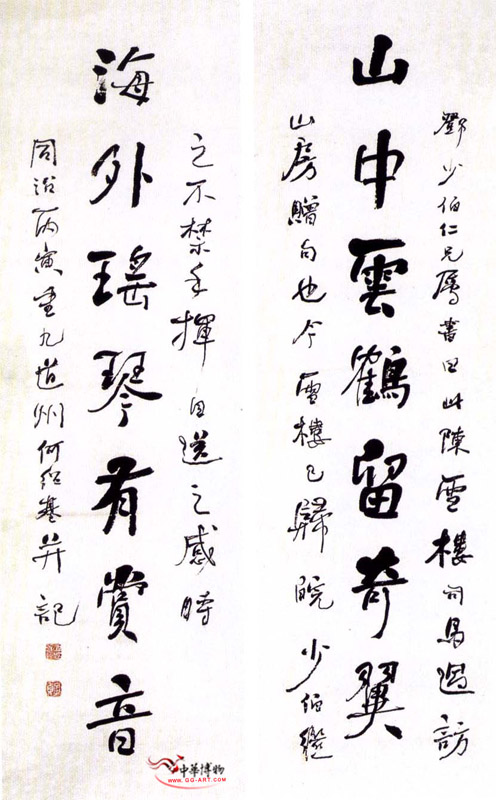 鄧少伯仁兄屬書曰此陳雪樓司馬過訪
山中雲鶴留奇翼
山房贈句也今雪樓已歸皖少伯繼
之不禁手揮目送之感時
海外瑤琴有賞音
同治丙寅重九道州何紹基并記
中華博物
WWW.GG-ART.COM